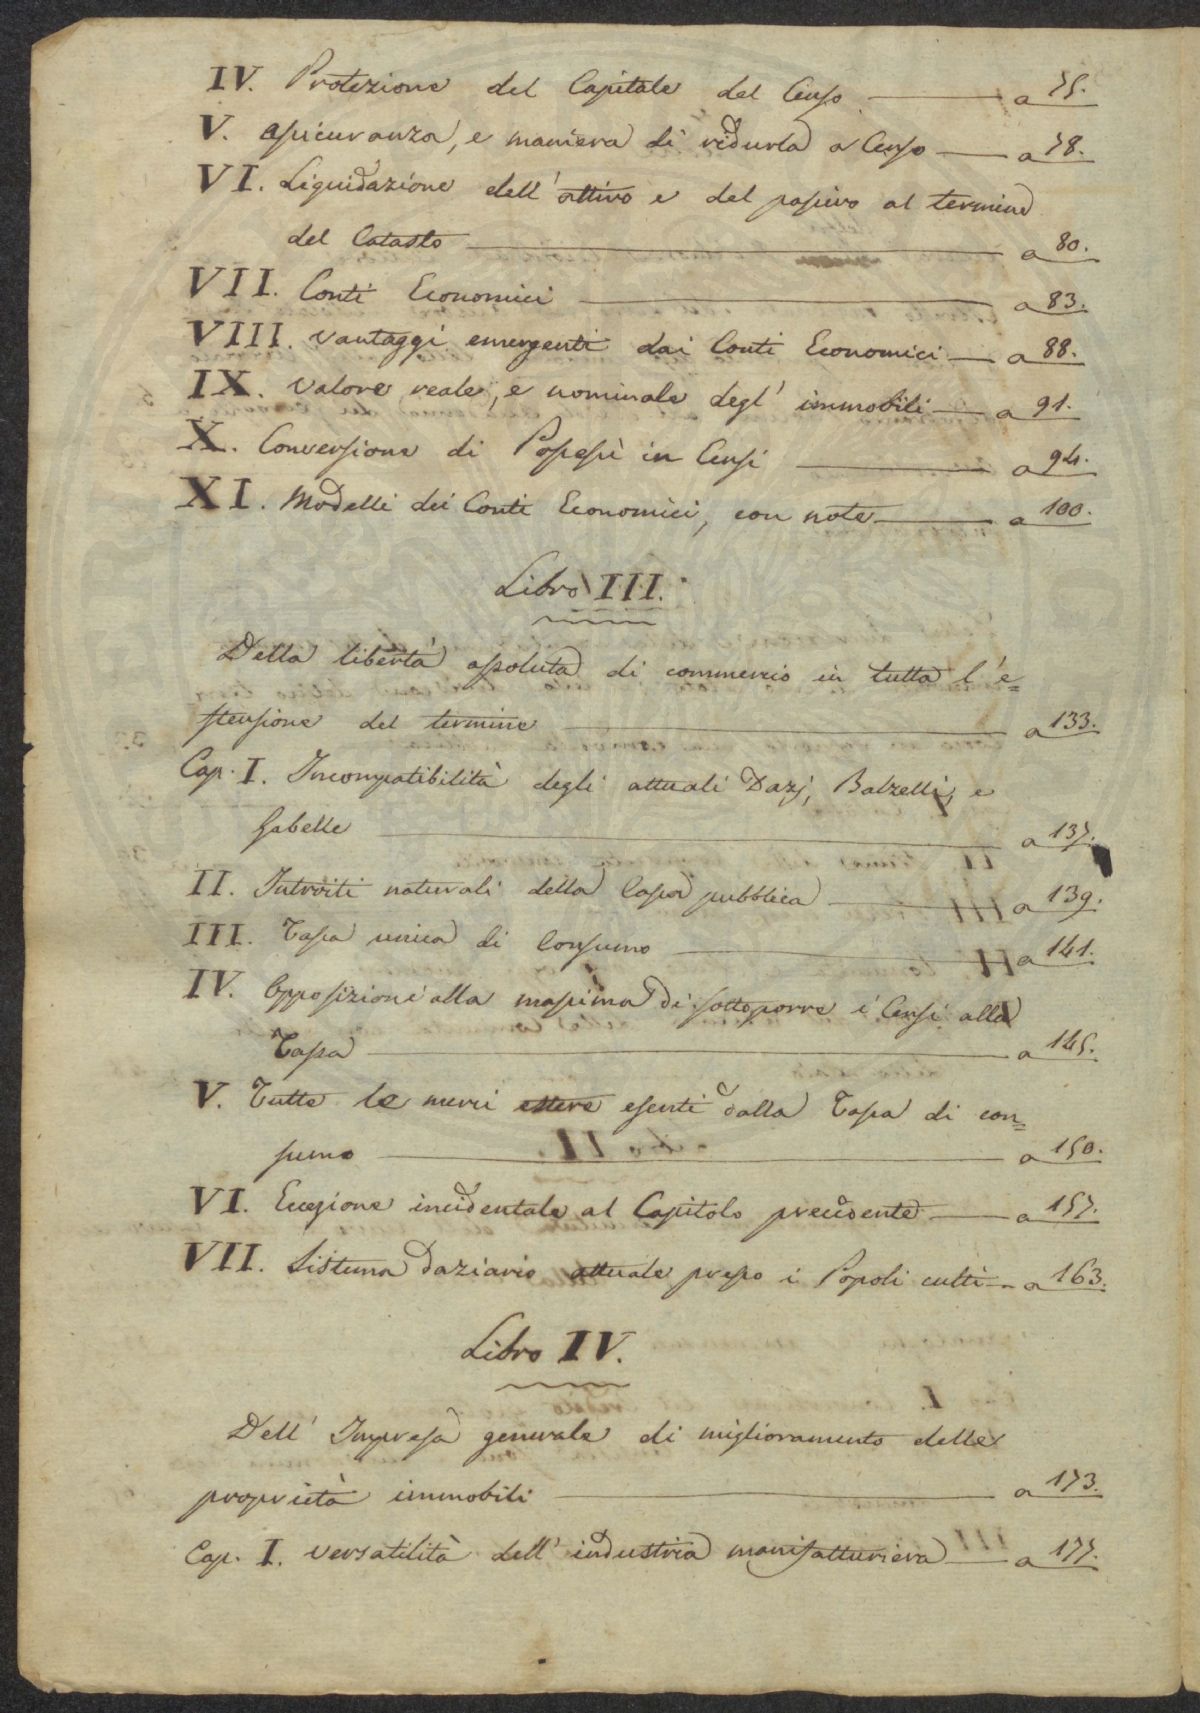 IV. Protezione del Capitale del Censo — a 75.
V. Assicuranza, e maniera di ridurla a Censo — a 78.
VI. Liquidazione dell'attivo e del passivo al termine
del Catasto — a 80.
VII. Conti Economici — a 83.
VIII. Vantaggi emergenti dai Conti Economici — a 88.
IX. Valore reale, e nominale degl'immobili — a 91.
X. Conversione di Possessi in Censi — a 94.
XI. Modelli dei Conti Economici, con note — a 100.
Libro III.
Della libertà assoluta di commercio in tutta l'e=
stensione del termine — a 133.
Cap. I. Incompatibilità degli attuali Dazj, Balzelli, e
Gabelle — a 137.
II. Introiti naturali della Cassa pubblica — a 139.
III. Tassa unica di Consumo — a 141.
IV. Opposizioni alla massima di sottoporre i Censi alla
Tassa — a 145.
V. Tutte le merci essere esenti dalla Tassa di con=
sumo — a 150.
VI. Eccezione incidentale al Capitolo precedente — a 157.
VII. Sistema Daziario attuale presso i Popoli culti — a 163.
Libro IV.
Dell'Impresa generale di miglioramento delle
proprietà immobili — a 173.
Cap. I. Versatilità dell'industria manifatturiera — a 177.